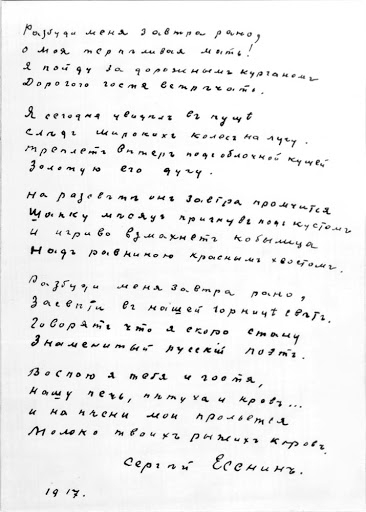 Разбуди меня завтра рано,
О моя терпѣливая мать!
Я пойду за дорожнымъ курганомъ
Дорогого гостя встрѣчать.
Я сегодня увидѣлъ в пущѣ
Слѣдъ широкихъ колесъ на лугу.
Треплетъ вѣтеръ подъ облачной кущей
Золотую его дугу.
На разсвѣтѣ онъ завтра промчится
Шапку мѣсяцъ пригнувъ подъ кустомъ
И игриво взмахнетъ кобылица
Надъ равниною краснымъ хвостомъ.
Разбуди меня завтра рано,
Засвѣти въ нашей горницѣ свѣтъ.
Говорятъ что я скоро стану
Знаменитый русскій поэтъ.
Воспою я тебя и гостя,
Нашу печь, пѣтуха и кровъ...
И на пѣсни мои прольется
Молоко твоихъ рыжихъ коровъ.
Сергѣй Есенинъ.
1917.